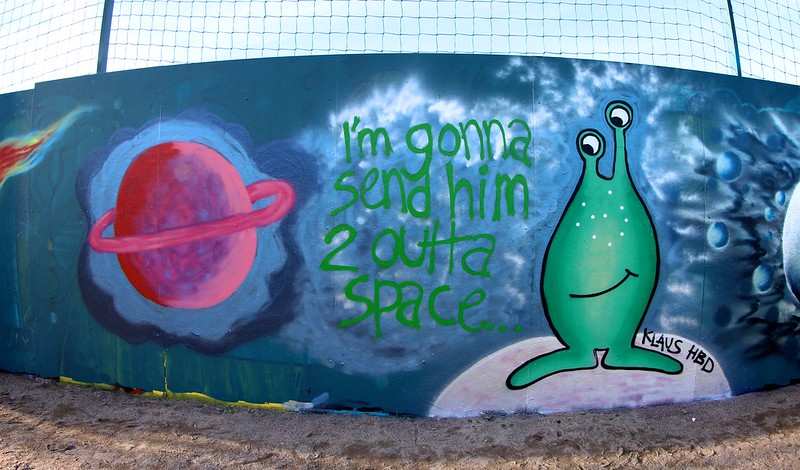 I'm gonna
send him
2 outta
space...
KLAUS HBD